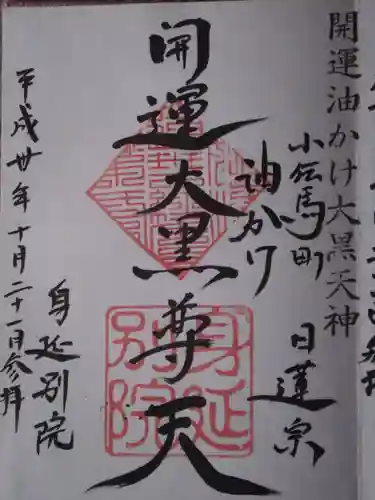 開運油かけ大黒天神
小伝馬町
日蓮宗
油かけ
開運大黒尊天
身延別院
身延別院
平成廿年十月二十一日参拝